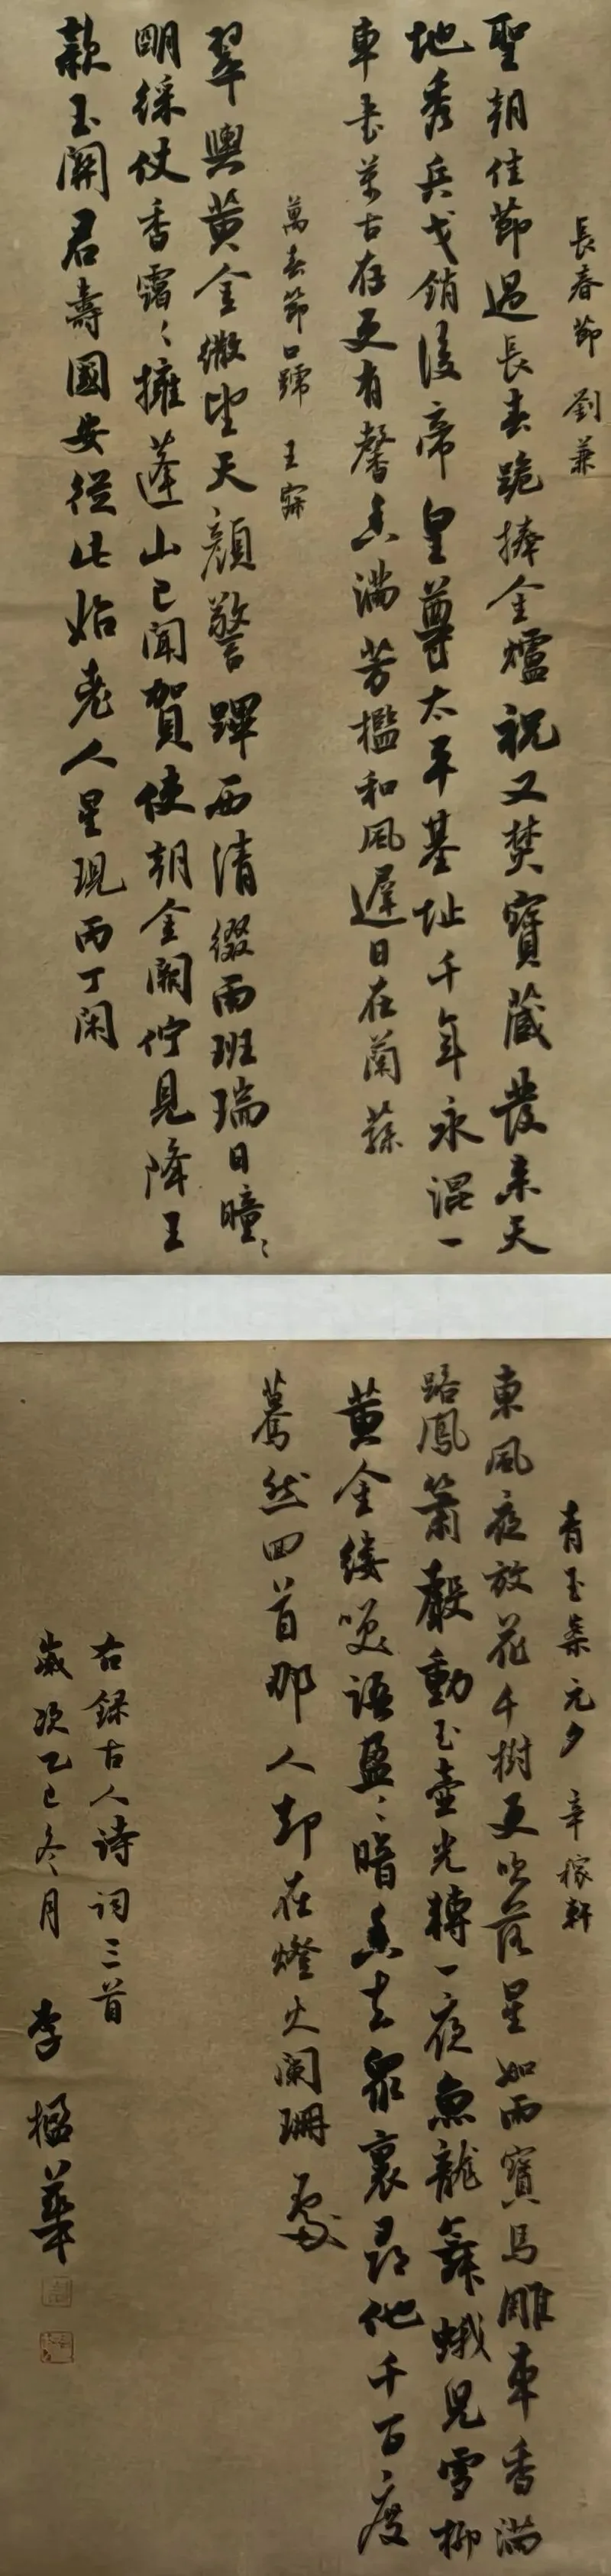 長春節 劉兼
聖朝佳節遇長春跪捧金爐祝又焚寶藏發來天
地秀兵戈銷後帝皇尊太平基址千年永混一
車書萬古存更有馨香滿芳檻和風遲日在蘭蓀
萬春節口號 王寀
翠輿黃金繖望天顏警蹕西清綴兩班瑞日曈〻
明綵仗香靄〻擁蓬山已聞賀使朝金闕佇見降王
款玉關君壽國安從此始老人星現丙丁閑
青玉案元夕 辛稼軒
東風夜放花千樹更吹落星如雨寶馬雕車香滿
路鳳簫聲動玉壺光轉一夜魚龍舞蛾兒雪柳
黃金縷笑語盈〻暗香去眾裏尋他千百度
驀然回首那人却在燈火闌珊處
右錄古人詩詞三首
歲次乙巳冬月 李楹華